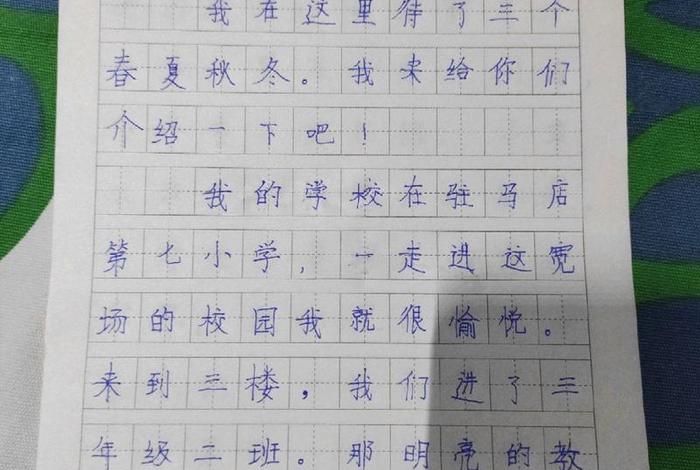 我在这里待了三个
春夏秋冬。我来给你们
介绍一下吧！
我的学校在驻马店
第七小学，一走进这宽
场的校园我就很愉悦。
来到三楼，我们进了三
年级二班。那明亮的教